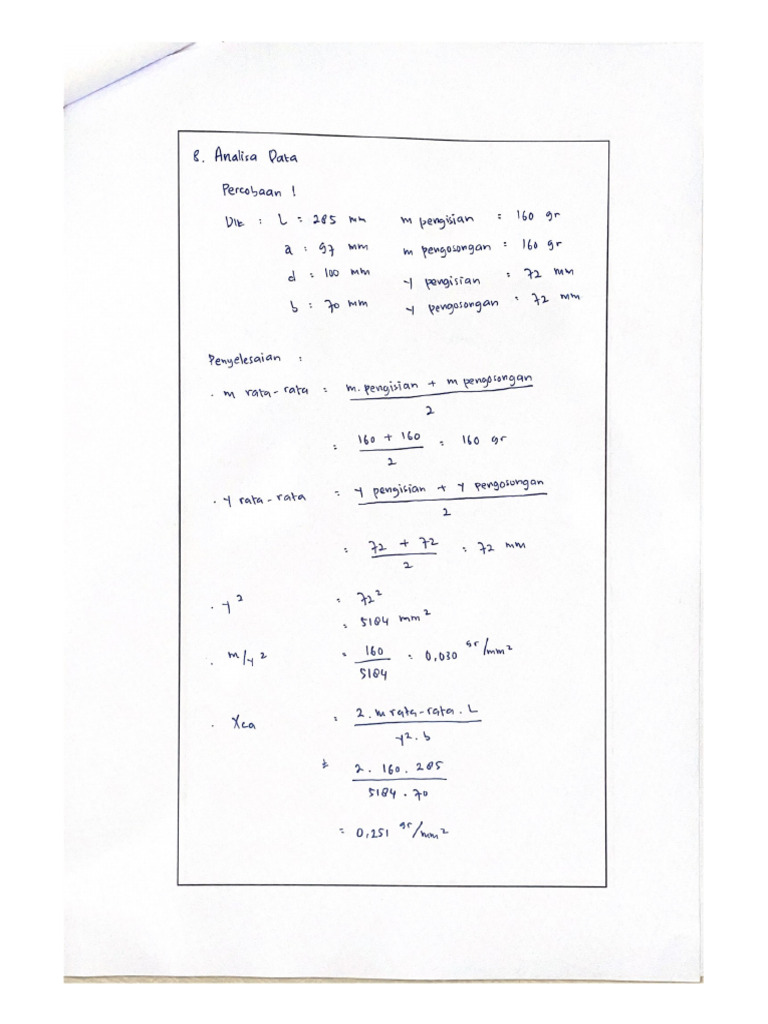 8. Analisa Data
Percobaan 1
Dik : L = 285 mm m pengisian : 160 gr
a : 97 mm m pengosongan : 160 gr
d : 100 mm y pengisian : 72 mm
b : 70 mm y pengosongan : 72 mm
Penyelesaian :
. m rata-rata = m.pengisian + m pengosongan
2
= 160 + 160 = 160 gr
2
. y rata-rata = y pengisian + y pengosongan
2
= 72 + 72 = 72 mm
2
. y² = 72²
= 5184 mm²
. m/y² = 160 = 0,030 gr/mm²
5184
. Xca = 2. m rata-rata. L
y². b
= 2. 160. 285
5184. 70
= 0,251 gr/mm²